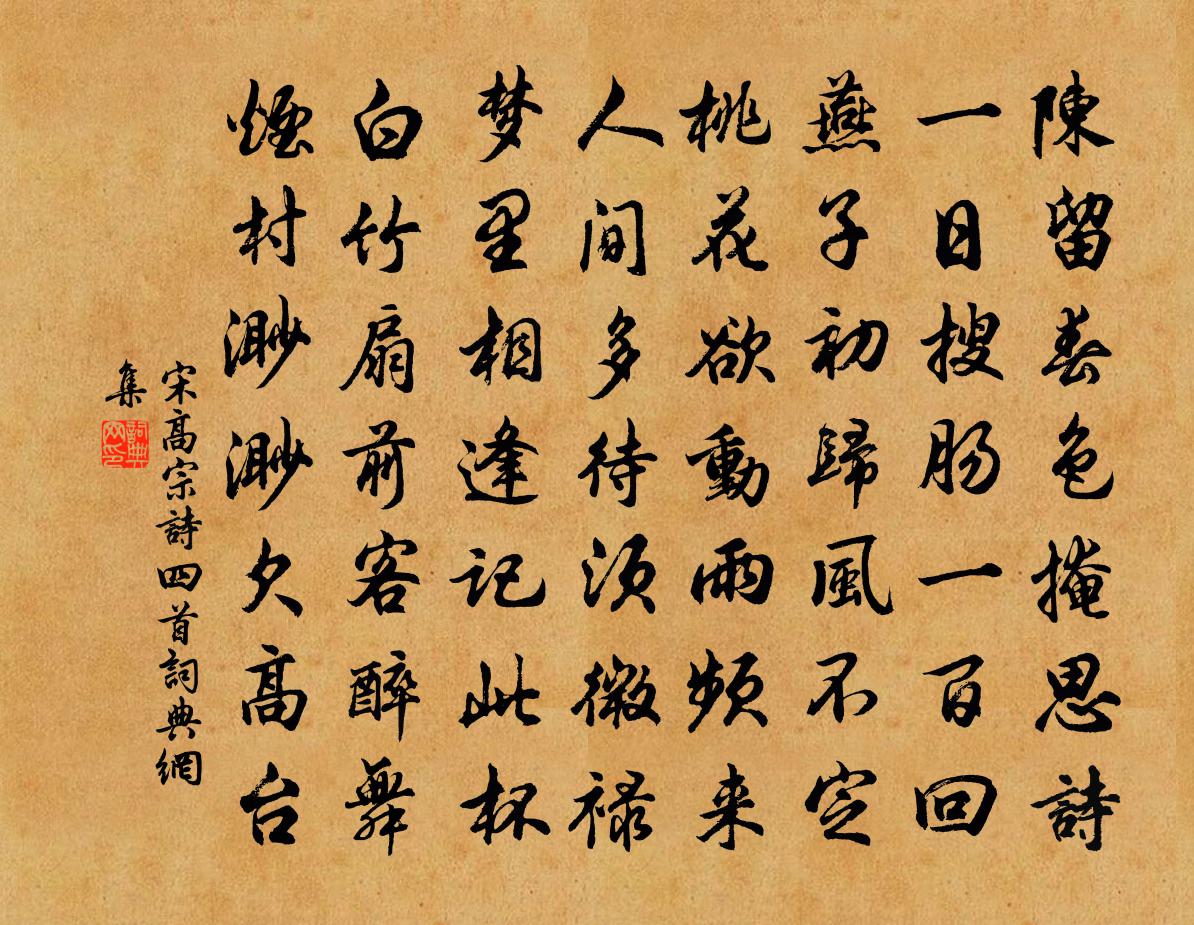 陳留春色掩思詩
一日搜肠一百回
燕子初歸風不定
桃花欲動雨頻来
人间多待须微禄
梦里相逢记此杯
白竹扇前客醉舞
煙村渺渺欠高台
宋高宗詩四首詞典網
集
詞典
网印